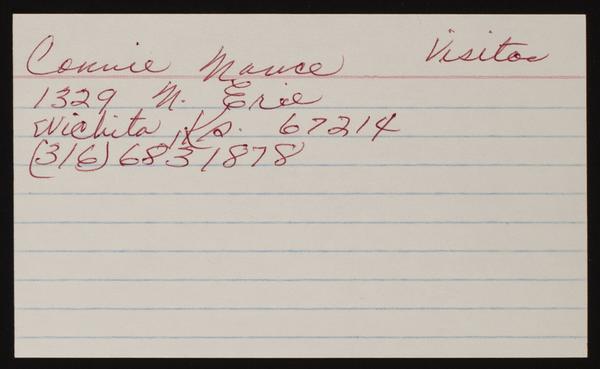 Connie Mance Visitor
1329 N. Erie
Wichita, Ks. 67214
(316) 683 1878